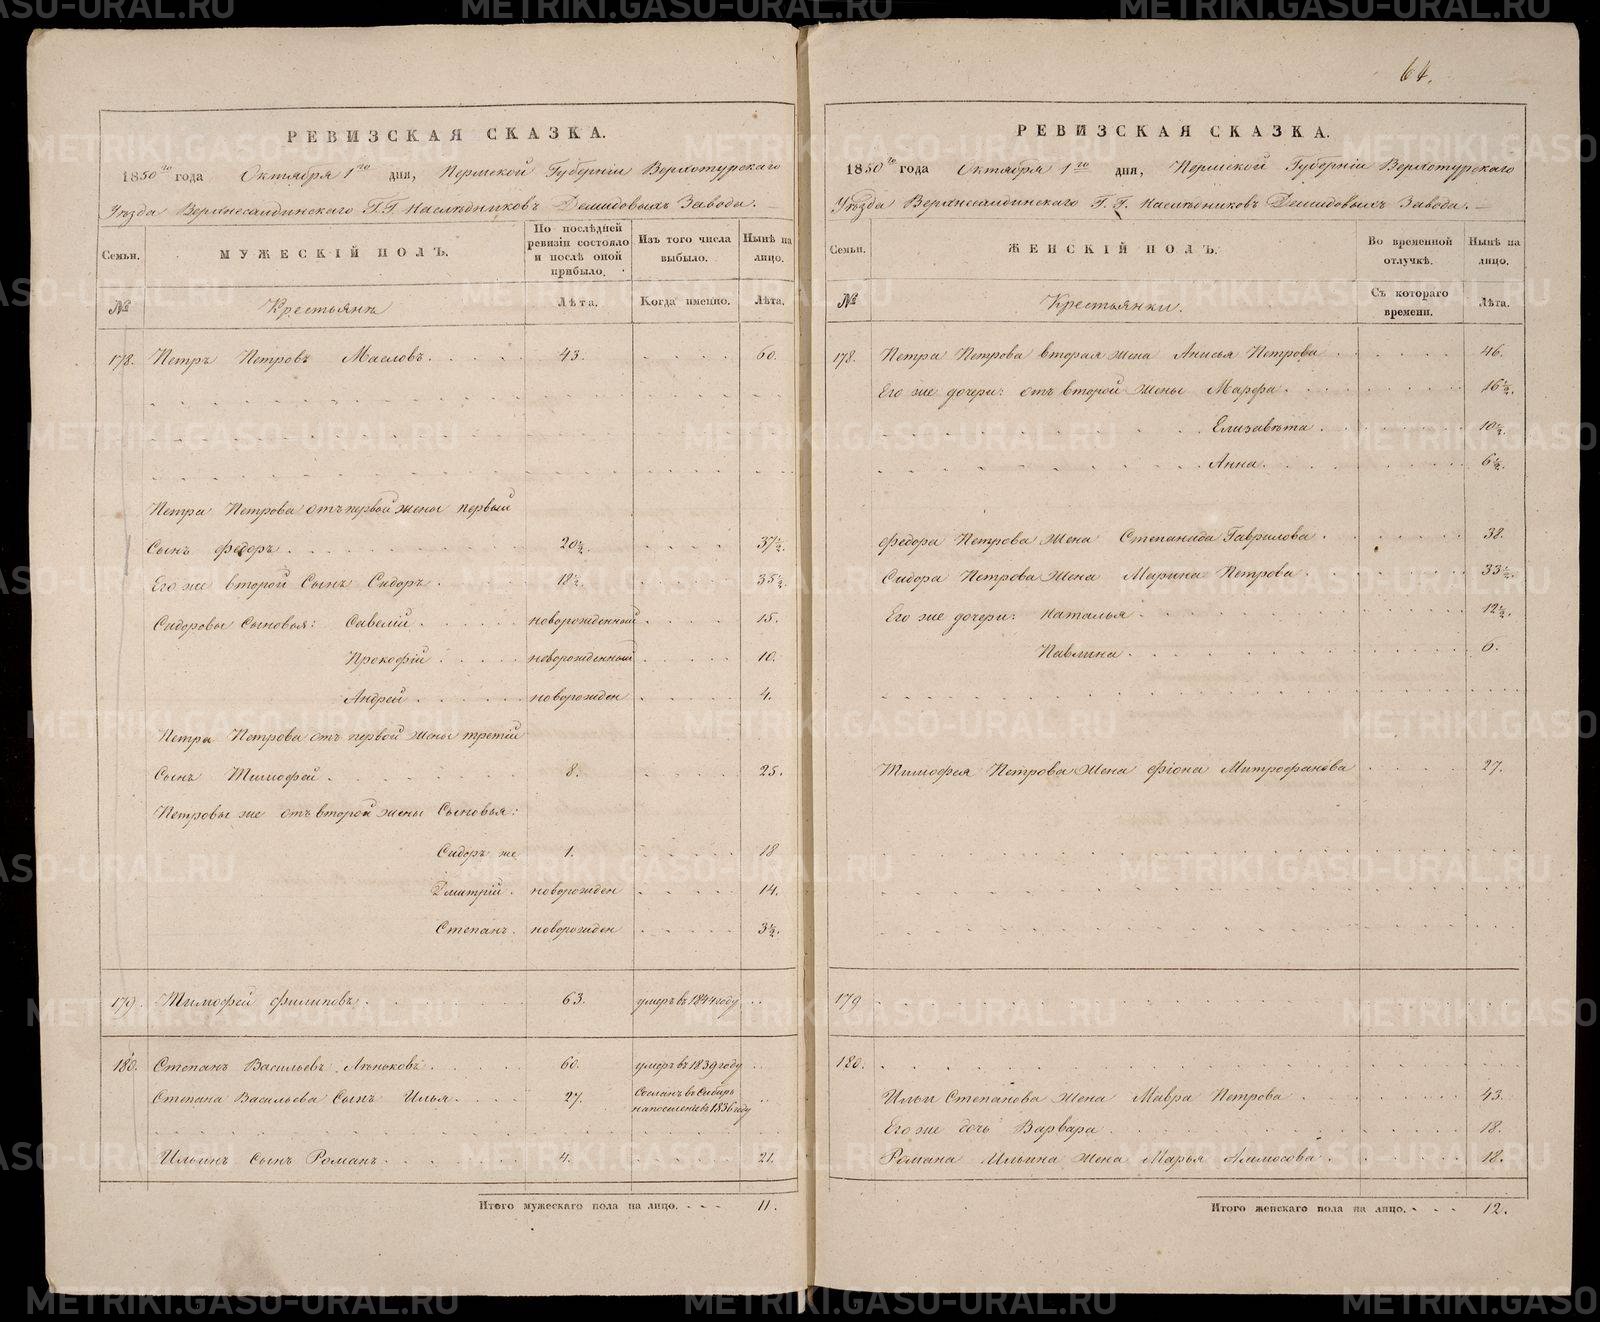 64.
РЕВИЗСКАЯ СКАЗКА.
1850го года Октября 1го дня, Пермской Губерніи Верхотурскаго
Уѣзда Верхнесалдинскаго Г.Г. Наслѣдниковъ Демидовыхъ Завода.
Семьи. МУЖЕСКІЙ ПОЛЪ. По послѣдней ревизіи состояло и послѣ оной прибыло. Изъ того числа выбыло. Нынѣ на лицо.
№ Крестьянъ Лѣта. Когда именно. Лѣта.
178. Петръ Петровъ Масловъ 43. 60.
Петра Петрова отъ первой жены первый
Сынъ Федоръ 20½. 37½.
Его же второй Сынъ Сидоръ 18½. 35½.
Сидоровы Сыновья: Савелій новорожденный 15.
Прокофій новорожденный 10.
Андрей новорожден 4.
Петра Петрова отъ первой жены третій
Сынъ Тимофей 8. 25.
Петровы же отъ второй жены Сыновья:
Сидоръ же 1. 18
Дмитрій новорожден 14.
Степанъ новорожден 3½.
179. Тимофей Филиповъ 63. умеръ въ 1844 году
180. Степанъ Васильевъ 60. умеръ въ 1839 году
Степана Васильева Сынъ Илья 27. Сосланъ въ Сибирь
на поселеніе въ 1836 году
Ильинъ Сынъ Романъ 4. 21.
Итого мужескаго пола на лицо. 11.
РЕВИЗСКАЯ СКАЗКА.
1850го года Октября 1го дня, Пермской Губерніи Верхотурскаго
Уѣзда Верхнесалдинскаго Г.Г. Наслѣдниковъ Демидовыхъ Завода.
Семьи. ЖЕНСКІЙ ПОЛЪ. Во временной отлучкѣ. Нынѣ на лицо.
№ Крестьянки. Съ котораго времени. Лѣта.
178. Петра Петрова вторая жена Анисья Петрова 46.
Его же дочери: отъ второй жены Марфа 16½.
Елизавѣта 10½.
Анна 6½.
Федора Петрова жена Степанида Гаврилова 38.
Сидора Петрова жена Марина Петрова 33½.
Его же дочери: Наталья 12½.
Павлина 6.
Тимофея Петрова жена Фіона Митрофанова 27.
179
180.
Ильи Степанова жена Мавра Петрова 43.
Его же дочь Варвара 18.
Романа Ильина жена Марья 18.
Итого женскаго пола на лицо. 12.
METRIKI.GASO-URAL.RU